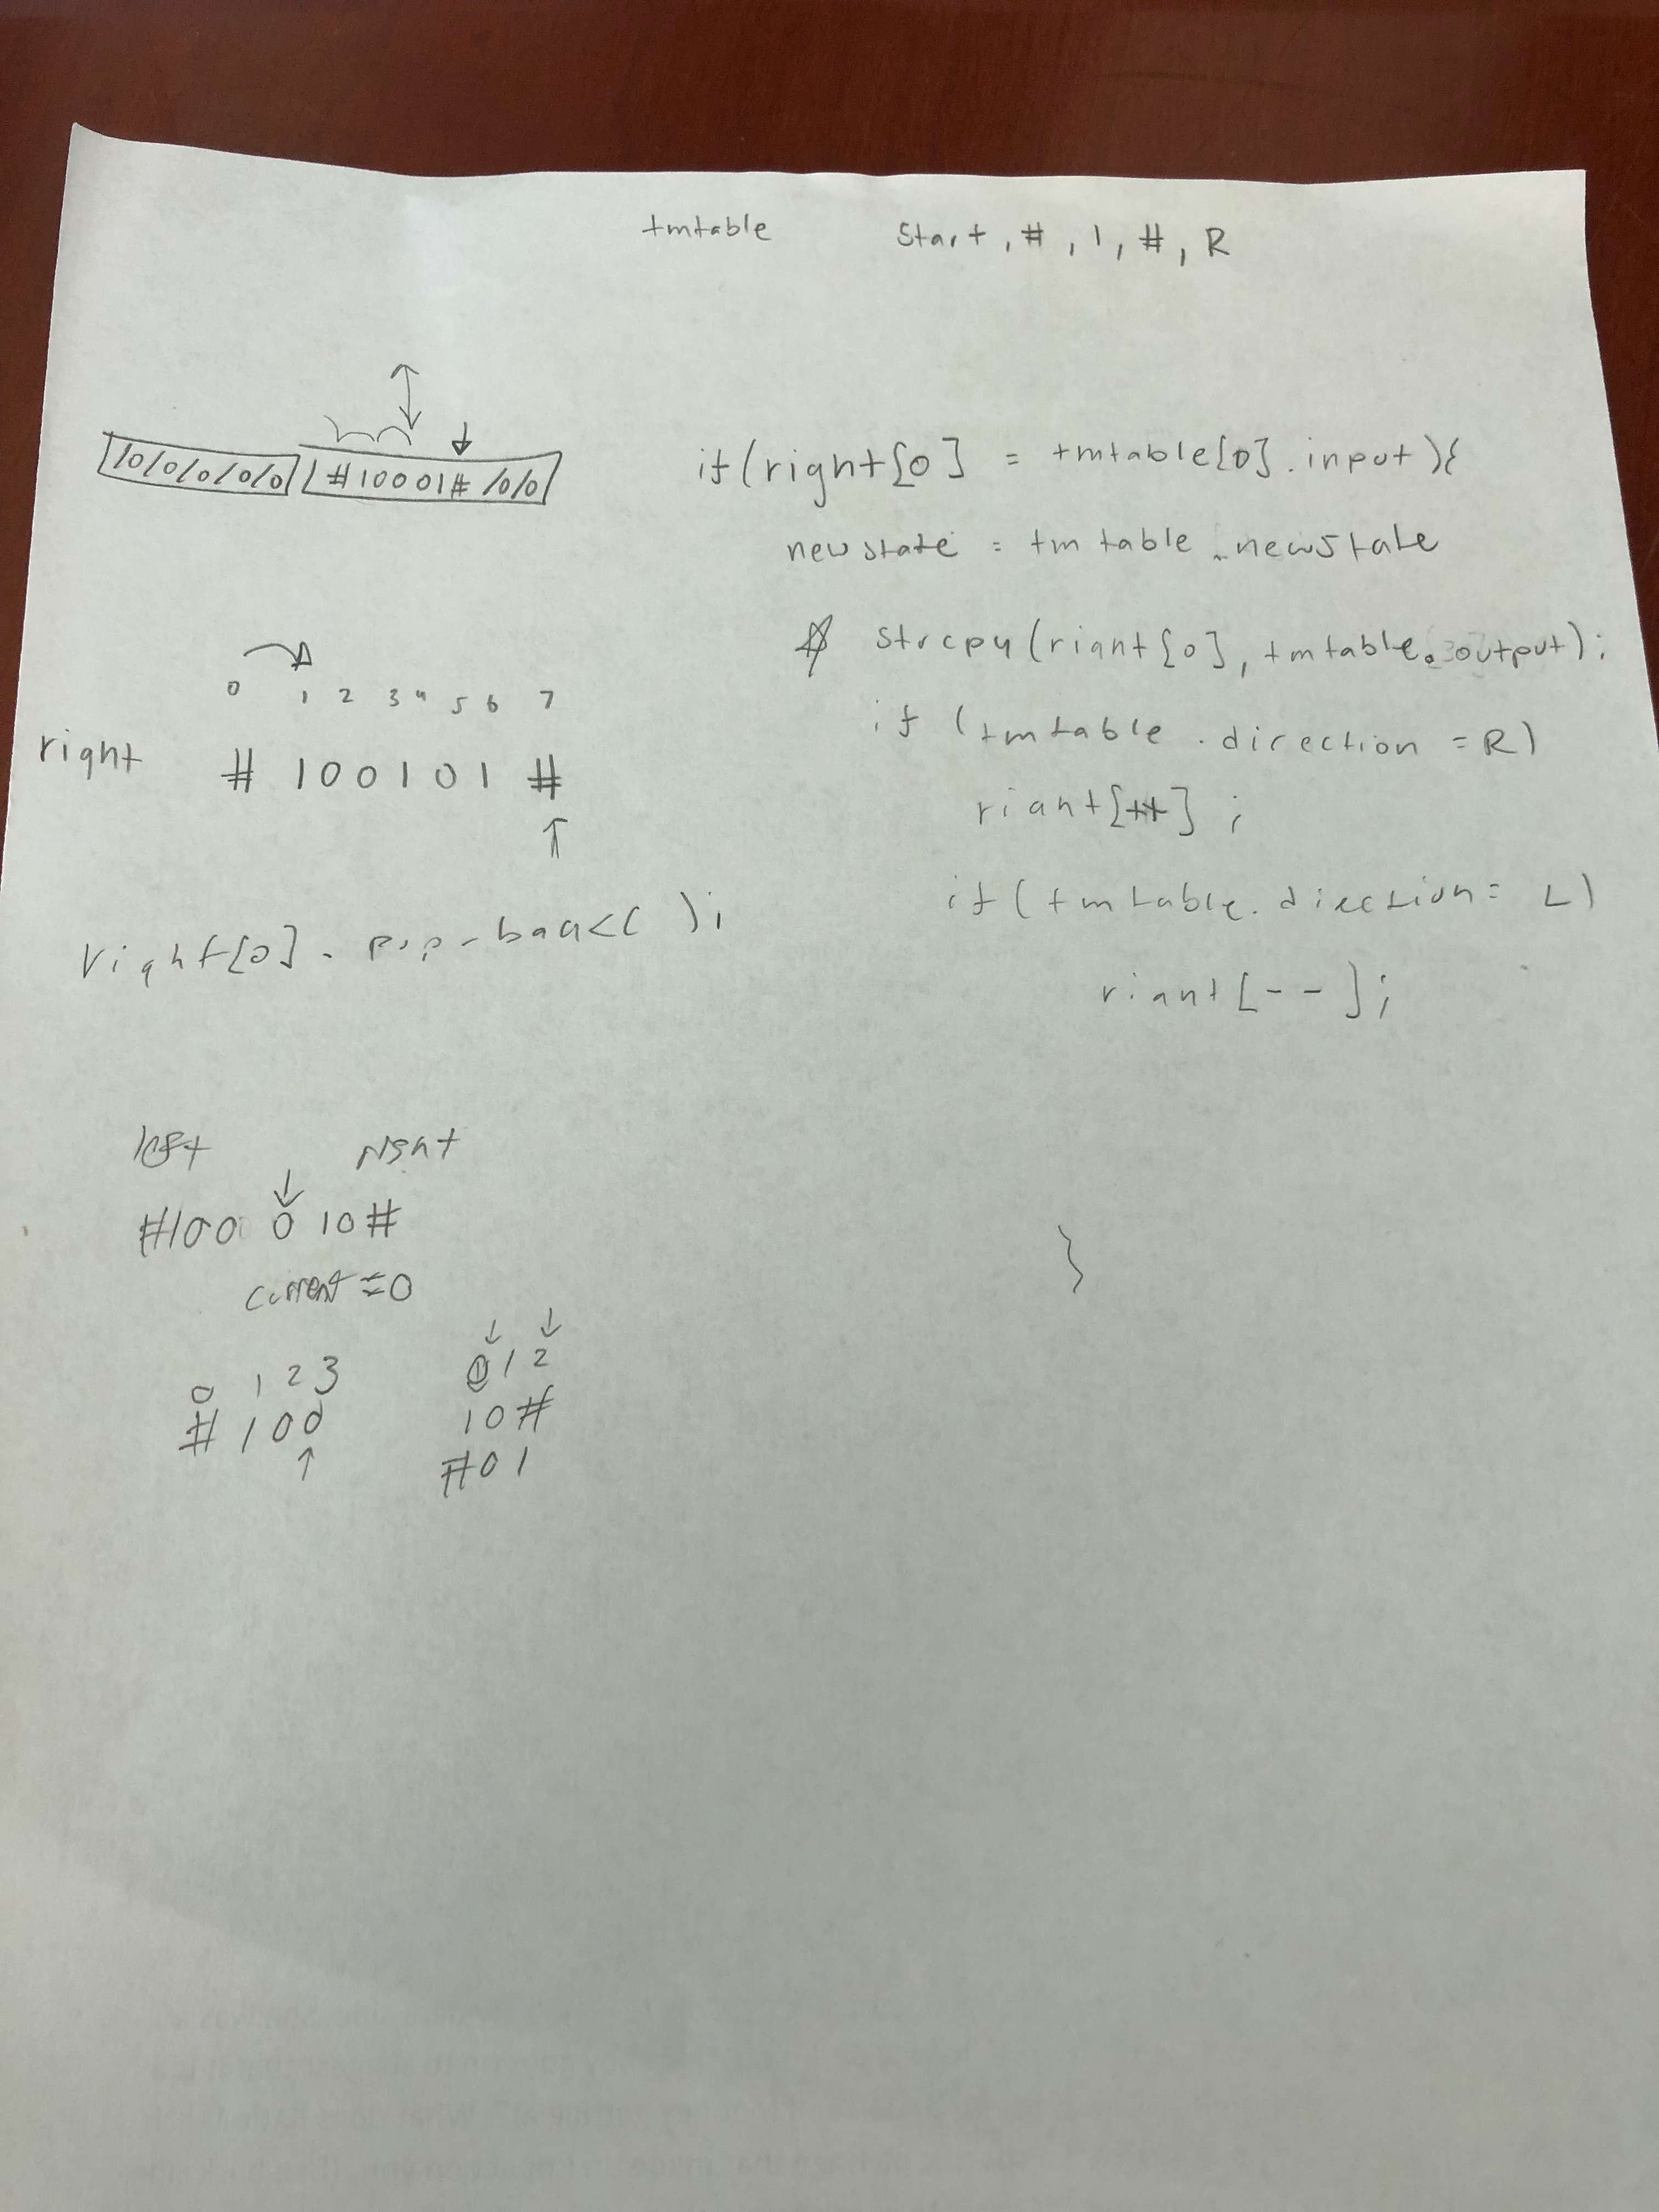 tmtable Start, #, 1, #, R
/0/0/0/0/0/ #10001# /0/0/
if(right[0] = tmtable[0].input){
newstate = tmtable.newState
strcpy(riant[0], tmtable.output);
if (tmtable.direction = R)
riant[++];
if(tmtable.direction = L)
riant[--];
}
0 1 2 3 4 5 6 7
right # 1 0 0 1 0 1 #
right[0].pop-back();
left right
#100 0 10#
current = 0
0 1 2 3 0 1 2
# 1 0 0 1 0 #
# 0 1